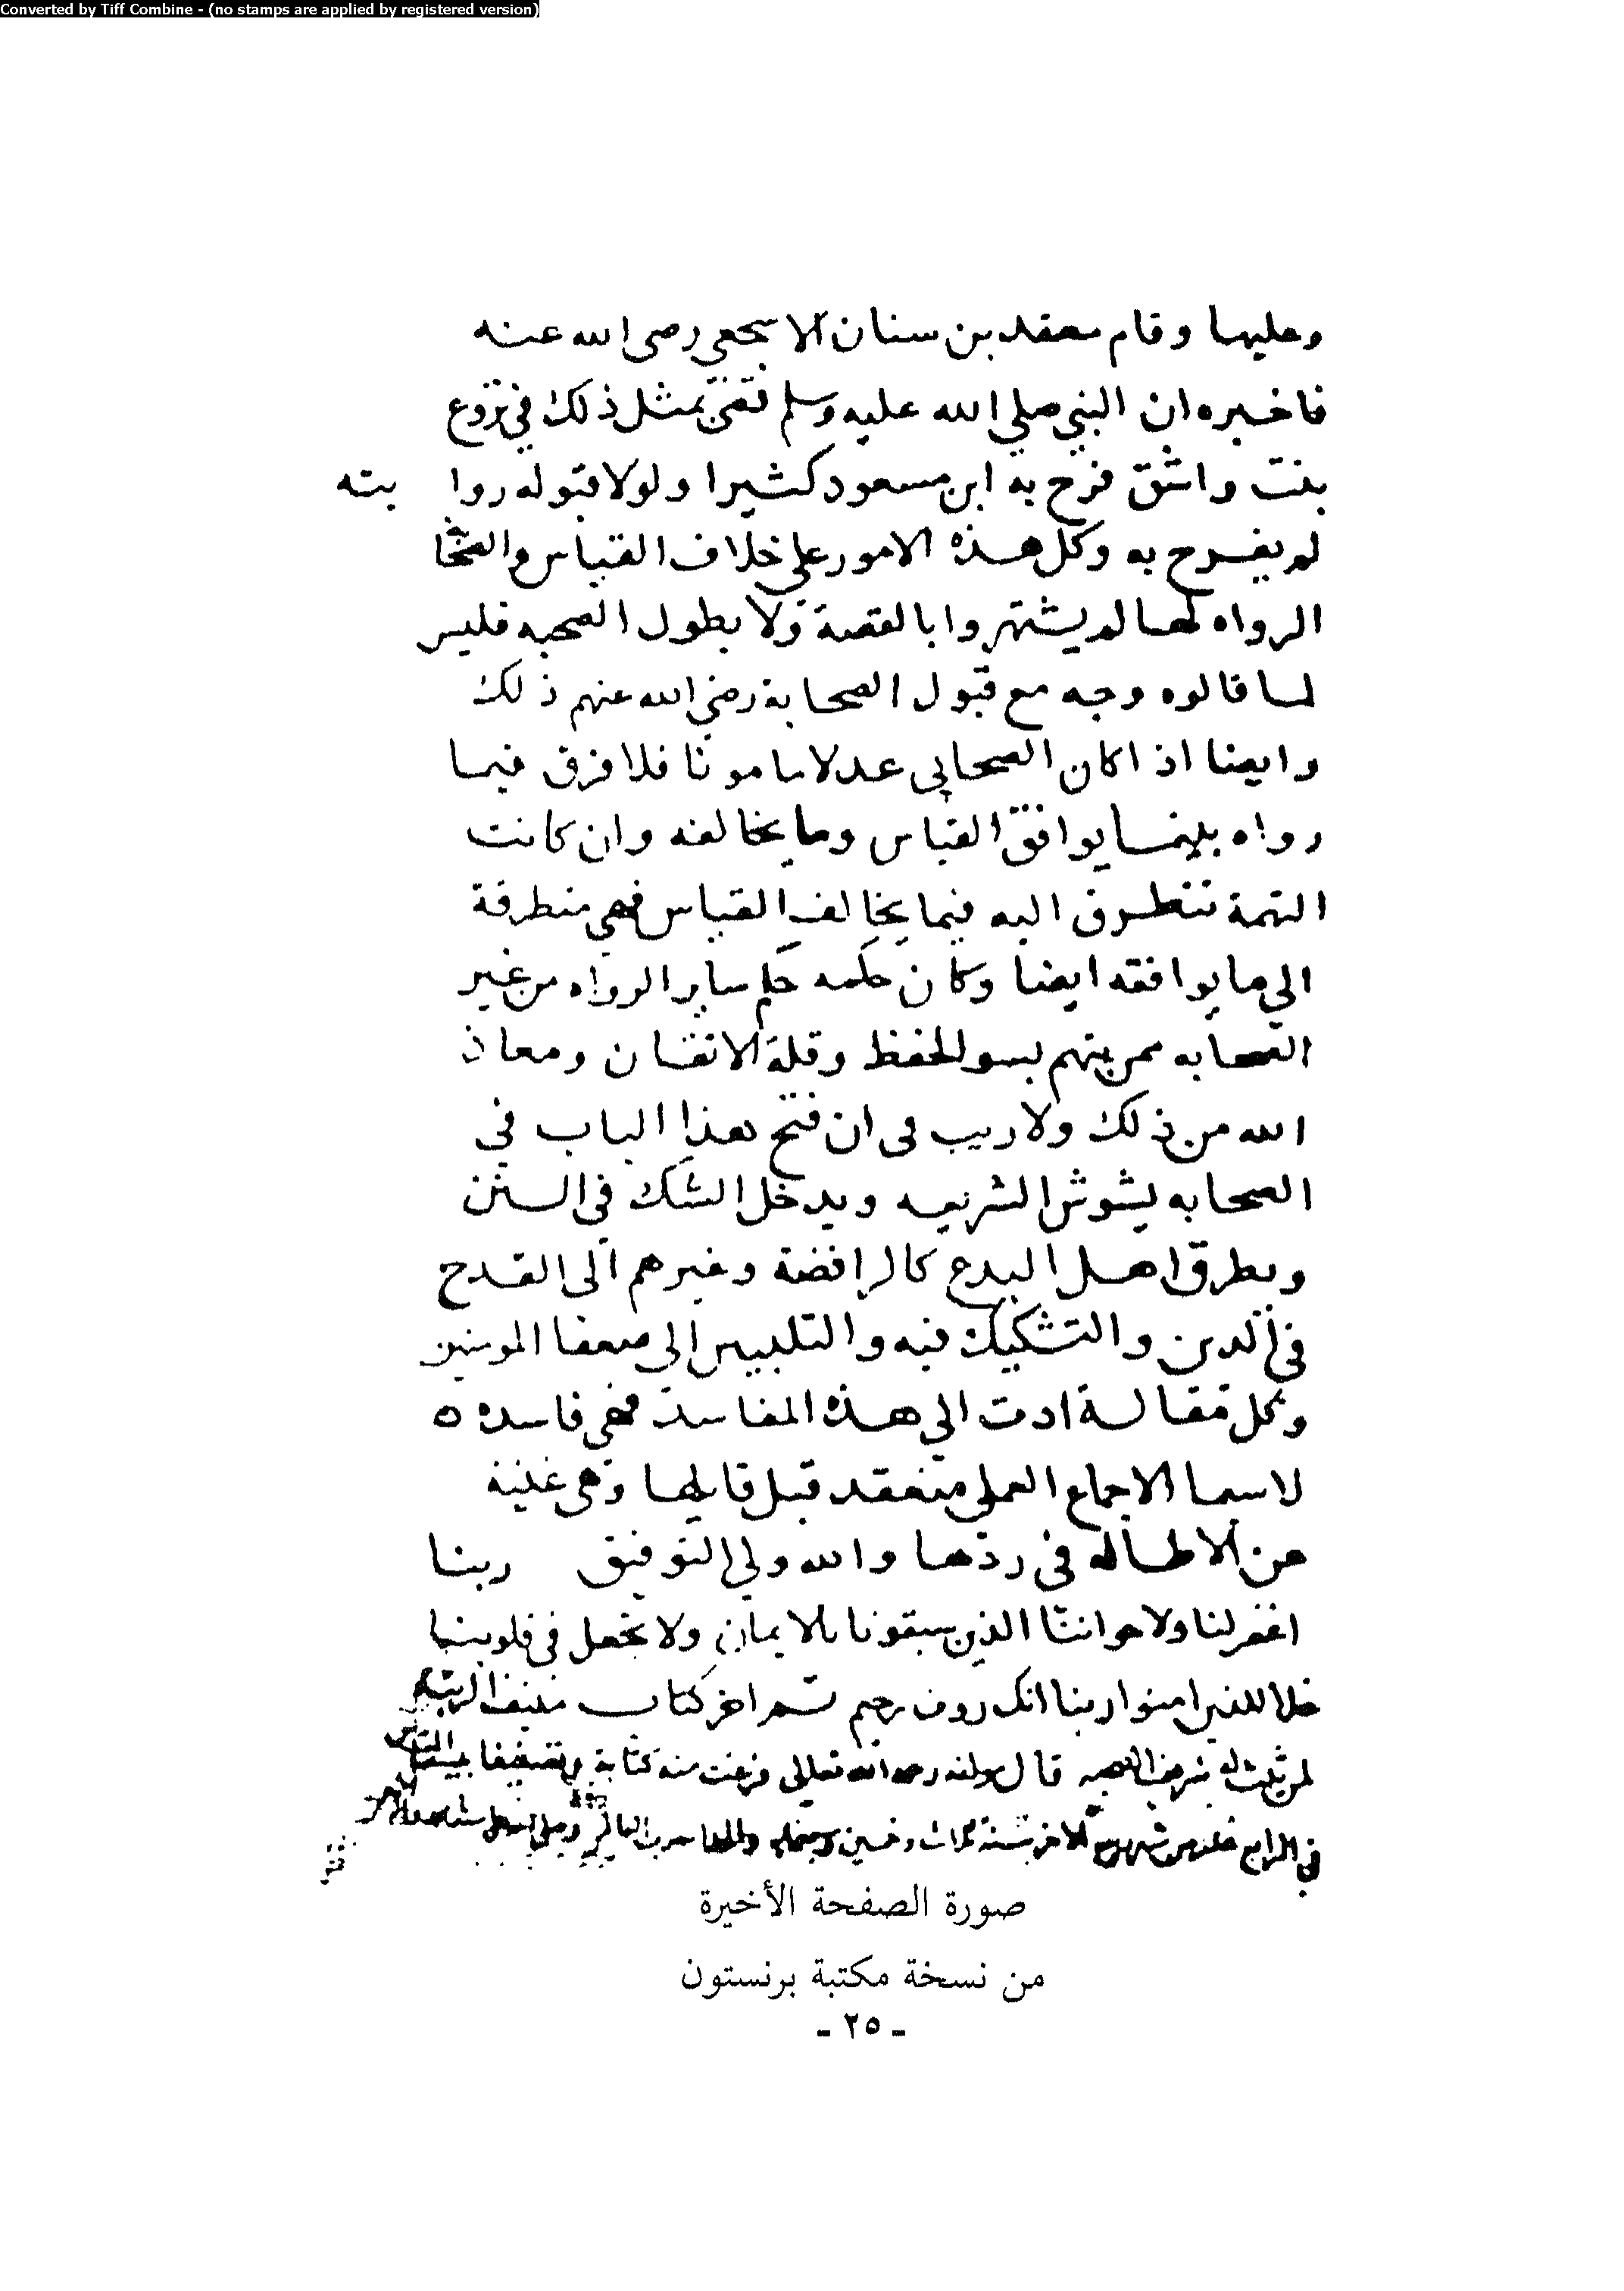 Converted by Tiff Combine - (no stamps are applied by registered version)
وعليها وقام معقل بن سنان الاشجعي رضى الله عنه
فاخبره ان النبي صلي الله عليه وسلم قضى بمثل ذلك في بروع
بنت واشق فرح به ابن مسعود كثيرا ولولا قبوله روا يته
لم يفرح به وكل هذه الامور على خلاف القياس والصحا
الرواه لها لم يشتهروا بالفقه ولا بطول الصحبه فليس
لما قالوه وجه مع قبول الصحابة رضي الله عنهم ذلك
وايضا اذا كان الصحابي عدلا مامونا فلا فرق فيما
رواه بينما يوافق القياس وما يخالفه وان كانت
التهمة تتطرق اليه فيما يخالف القياس فهي متطرقة
الي ما يوافقه ايضا وكان حكمه حكم ساير الرواه من غير
الصحابه ممن يتهم بسو الحفظ وقلة الاتقان ومعاذ
الله من ذلك ولا ريب فى ان فتح هذا الباب في
الصحابه يشوش الشريعه ويدخل الشك في السنن
ويطرق اهل البدع كالرافضة وغيرهم الى القدح
في الدين والتشكيك فيه والتلبيس الي ضعفا المومنين
وكل مقالة ادت الي هذه المفاسد فهي فاسده ه
لاسيما الاجماع العملي منعقد قبل قايلها وهى غنية
عن الاطاله في ردها والله ولي التوفيق ربنا
اغفر لنا ولاخواننا الذين سبقونا بالايمان ولا تجعل في قلوبنا
غلا للذين امنوا ربنا انك روف رحيم تم اخر كتاب منيف الرتبه
لمن ثبت له شريف الصحبه قال مولفه رحمه الله تعالى فرغت منه كتابة وتصنيفا
في الرابع من شهر الاخر سنة وخمسين وسبعمايه
صورة الصفحة الأخيرة
من نسخة مكتبة برنستون
- ٢٥ -